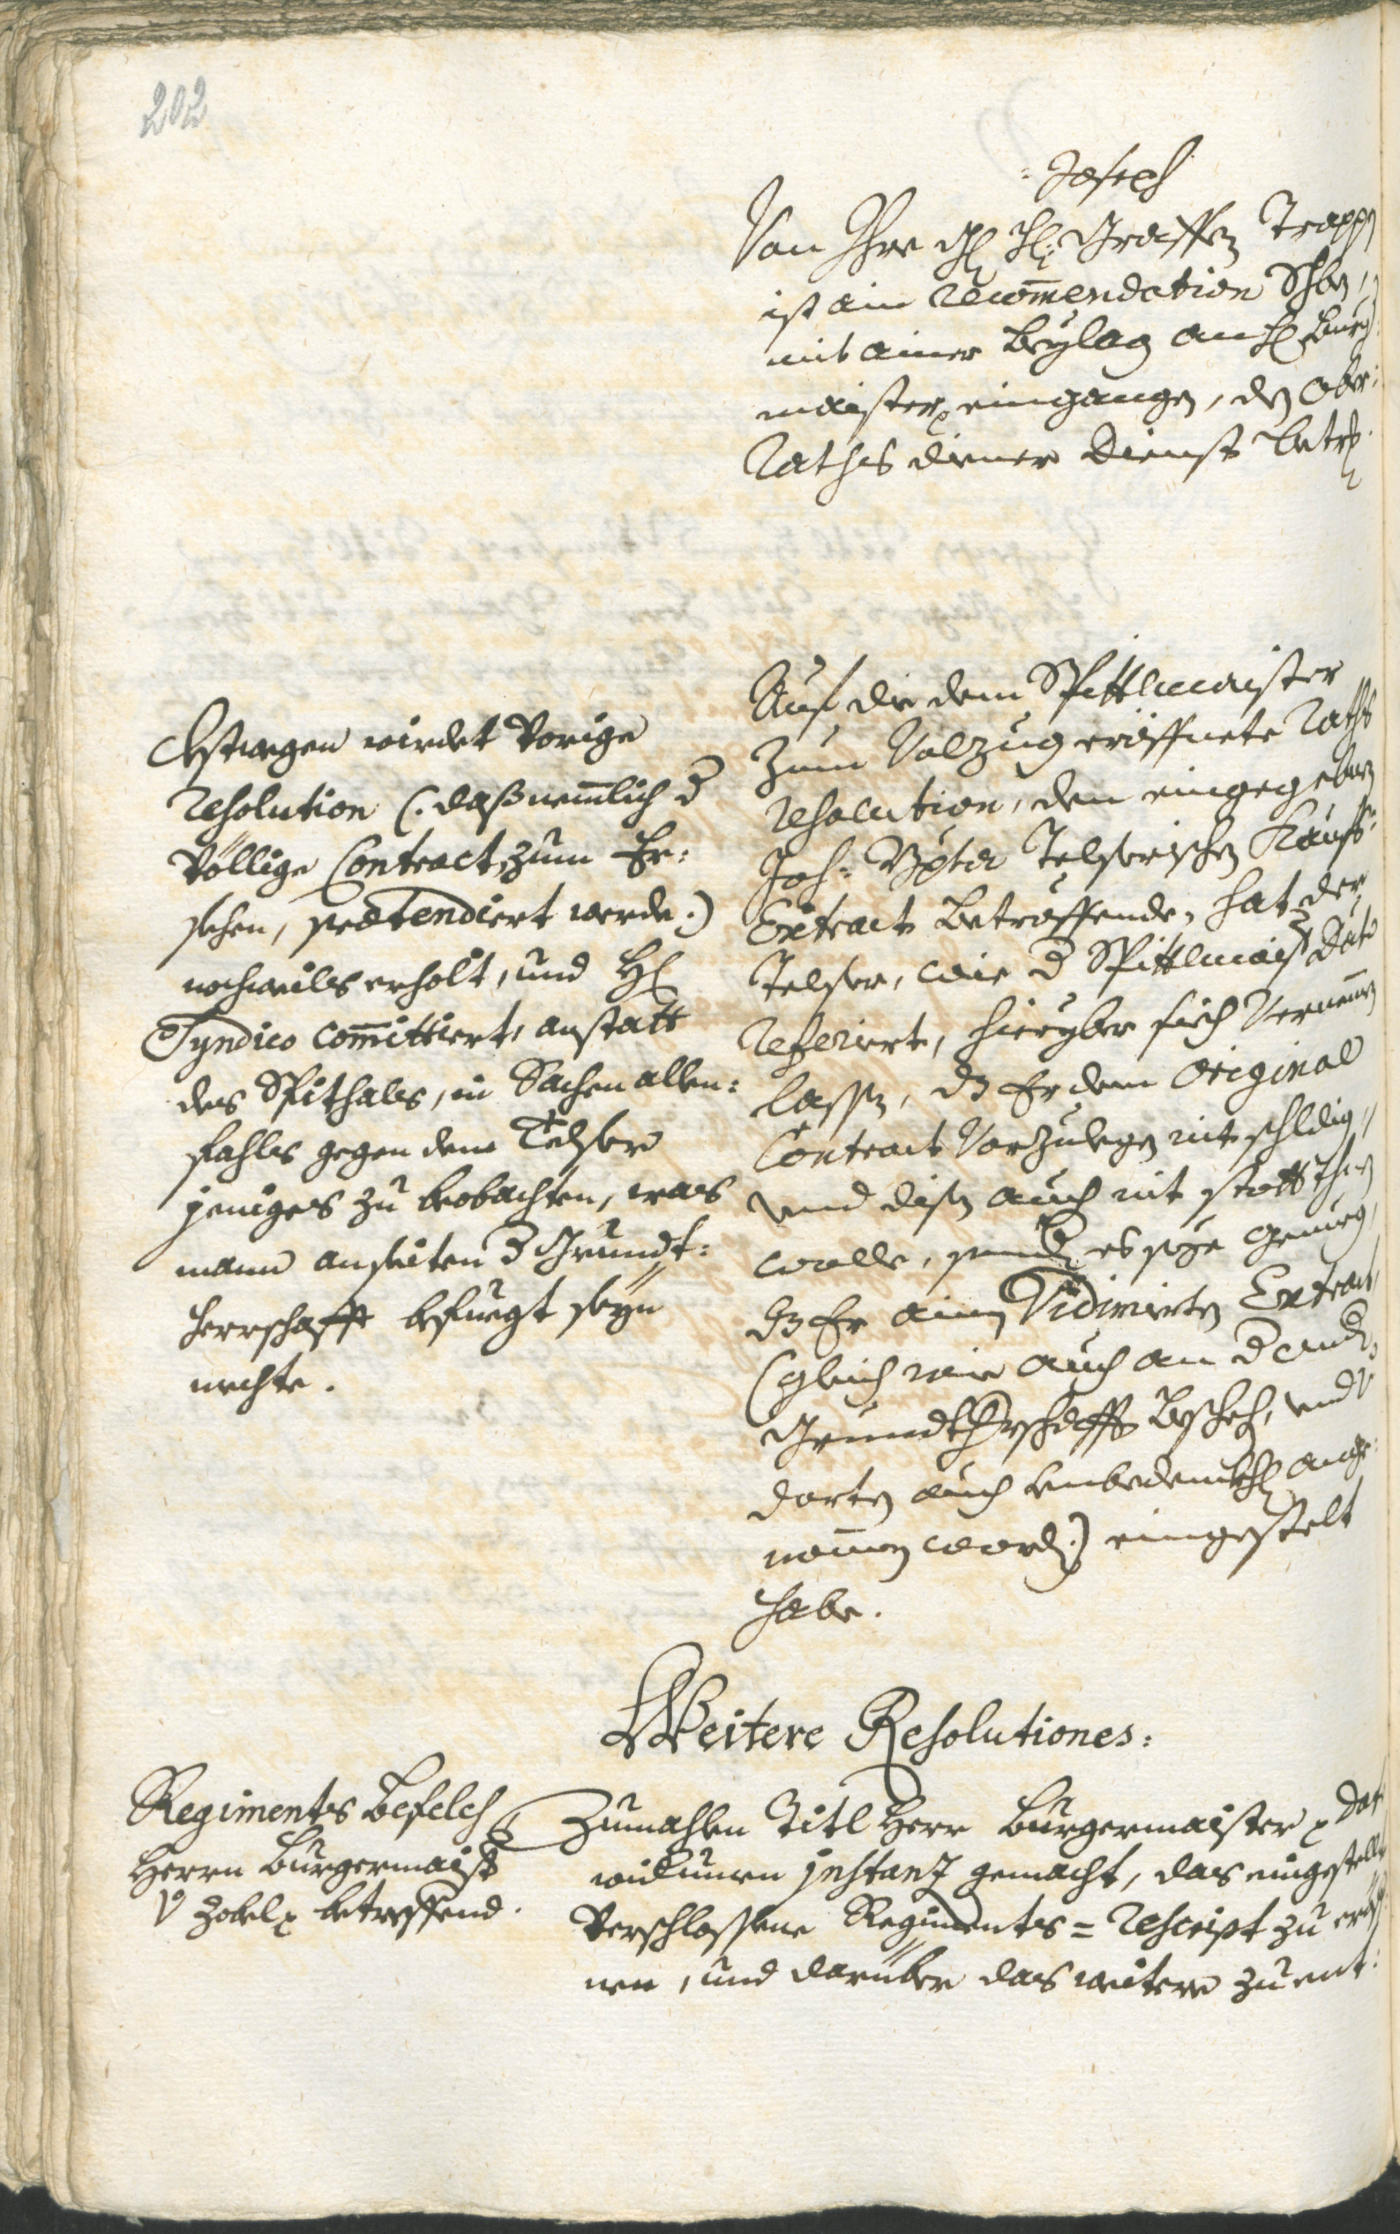 202
: Joseph
Von Ihro Hl: Graffen Trapp
ist ain recom̄endation Schbn,
mit ainer Beylag an H Burg:
maister eingangen, dz Ober:
Raths diener Dienst betrf.
Auf die dem Spittlmaister
zum Volzug eröffnete Raths
resolution, den eingegebnen
Joh: Bpta Telserischen Kauffs:
Extract betreffende, hat der
Telser, wie d Spittlmaistr dato
referiert, hieryber sich vernem̄en
lassen, dz Er dem Original
Contract vorzulegen nit schldig,
und diss auch nit statt thuen
wolle, sondern es seye genueg,
dz Er ainen Vidimierten Extract,
(gleich wie auch an d andern
Grundtherrschafft beschech, und
dorten auch unbedenkhl ange:
nom̄en worden) eingestelt
habe.
Estwegen wirdet vorige
resolution (: daß nem̄lich d
völlige Contract zum Er:
sehen, praetendiert werde :)
nochmals erholt, und Hl
Syndico com̄ittiert, anstatt
des Spithals, in Sachen allen:
fahls gegen dem Telser
jeniges zu beobachten, was
mann anseiten d Grundt:
herrschafft befuegt seyn
mechte.
Weitere Resolutiones:
Regiments Befelch
Herrn Burgermaistr
v Zobel betreffend.
Zumahlen Titl Herr Burgermaister dat
widumen instanz gemacht, das eingestellte
verschlossene Regiments = rescript zu eröff
nen, und darüber das weitere zu ent: